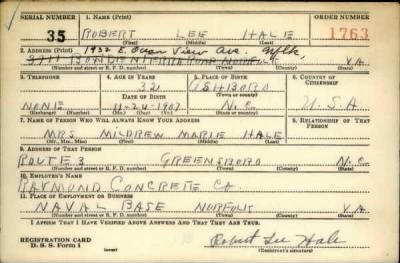 SERIAL NUMBER 1. NAME (Print) ORDER NUMBER
35 ROBERT LEE HALE 1763
(First) (Middle) (Last)
2. ADDRESS (Print) 1932 E. Ocean View Ave. Nflk,
VA.
(Number and street or R. F. D. number) (Town) (County) (State)
3. TELEPHONE 4. AGE IN YEARS 5. PLACE OF BIRTH 6. COUNTRY OF CITIZENSHIP
32 ASHBORO
DATE OF BIRTH (Town or county)
NONE 11-24-1907 N.C. U.S.A
(Exchange) (Number) (Mo.) (Day) (Yr.) (State or country)
7. NAME OF PERSON WHO WILL ALWAYS KNOW YOUR ADDRESS 8. RELATIONSHIP OF THAT PERSON
MRS MILDREW MARIE HALE
(Mr., Mrs., Miss) (First) (Middle) (Last)
9. ADDRESS OF THAT PERSON
ROUTE 3 GREENSBORO N.C.
(Number and street or R. F. D. number) (Town) (County) (State)
10. EMPLOYER'S NAME
RAYMOND CONCRETE CO.
11. PLACE OF EMPLOYMENT OR BUSINESS
NAVAL BASE NORFOLK VA
(Number and street or R. F. D. number) (Town) (County) (State)
I AFFIRM THAT I HAVE VERIFIED ABOVE ANSWERS AND THAT THEY ARE TRUE.
REGISTRATION CARD
D. S. S. Form 1 Robert Lee Hale
(Registrant's signature)